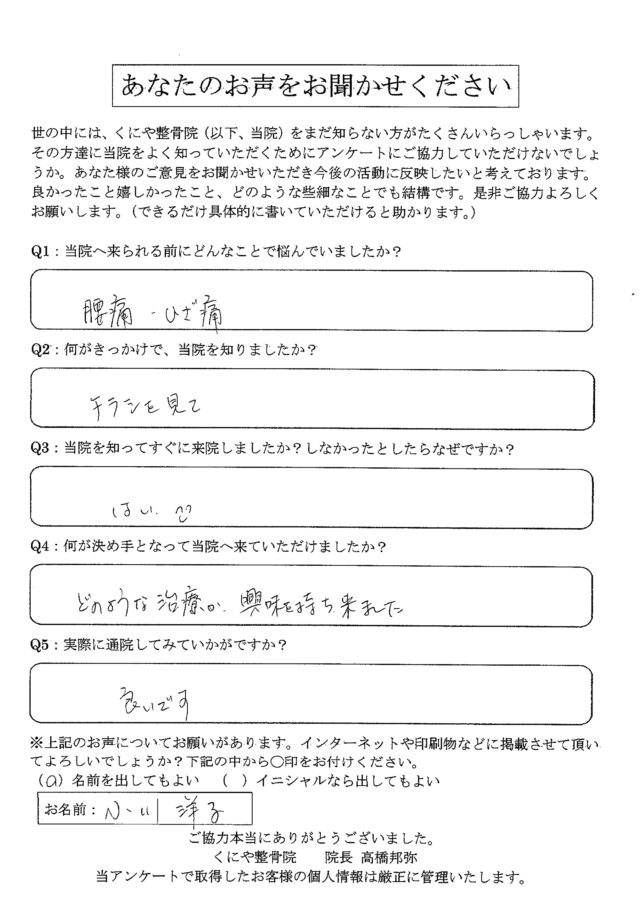 あなたのお声をお聞かせください
世の中には、くにや整骨院（以下、当院）をまだ知らない方がたくさんいらっしゃいます。
その方達に当院をよく知っていただくためにアンケートにご協力していただけないでしょ
うか。あなた様のご意見をお聞かせいただき今後の活動に反映したいと考えております。
良かったこと嬉しかったこと、どのような些細なことでも結構です。是非ご協力よろしく
お願いします。（できるだけ具体的に書いていただけると助かります。）
Q1：当院へ来られる前にどんなことで悩んでいましたか？
腰痛・ひざ痛
Q2：何がきっかけで、当院を知りましたか？
チラシを見て
Q3：当院を知ってすぐに来院しましたか？しなかったとしたらなぜですか？
はい
Q4：何が決め手となって当院へ来ていただけましたか？
どのような治療か、興味を持ち来ました
Q5：実際に通院してみていかがですか？
良いです
※上記のお声についてお願いがあります。インターネットや印刷物などに掲載させて頂い
てよろしいでしょうか？下記の中から〇印をお付けください。
（〇）名前を出してもよい （ ）イニシャルなら出してもよい
お名前：小川 洋子
ご協力本当にありがとうございました。
くにや整骨院 院長 高橋邦弥
当アンケートで取得したお客様の個人情報は厳正に管理いたします。